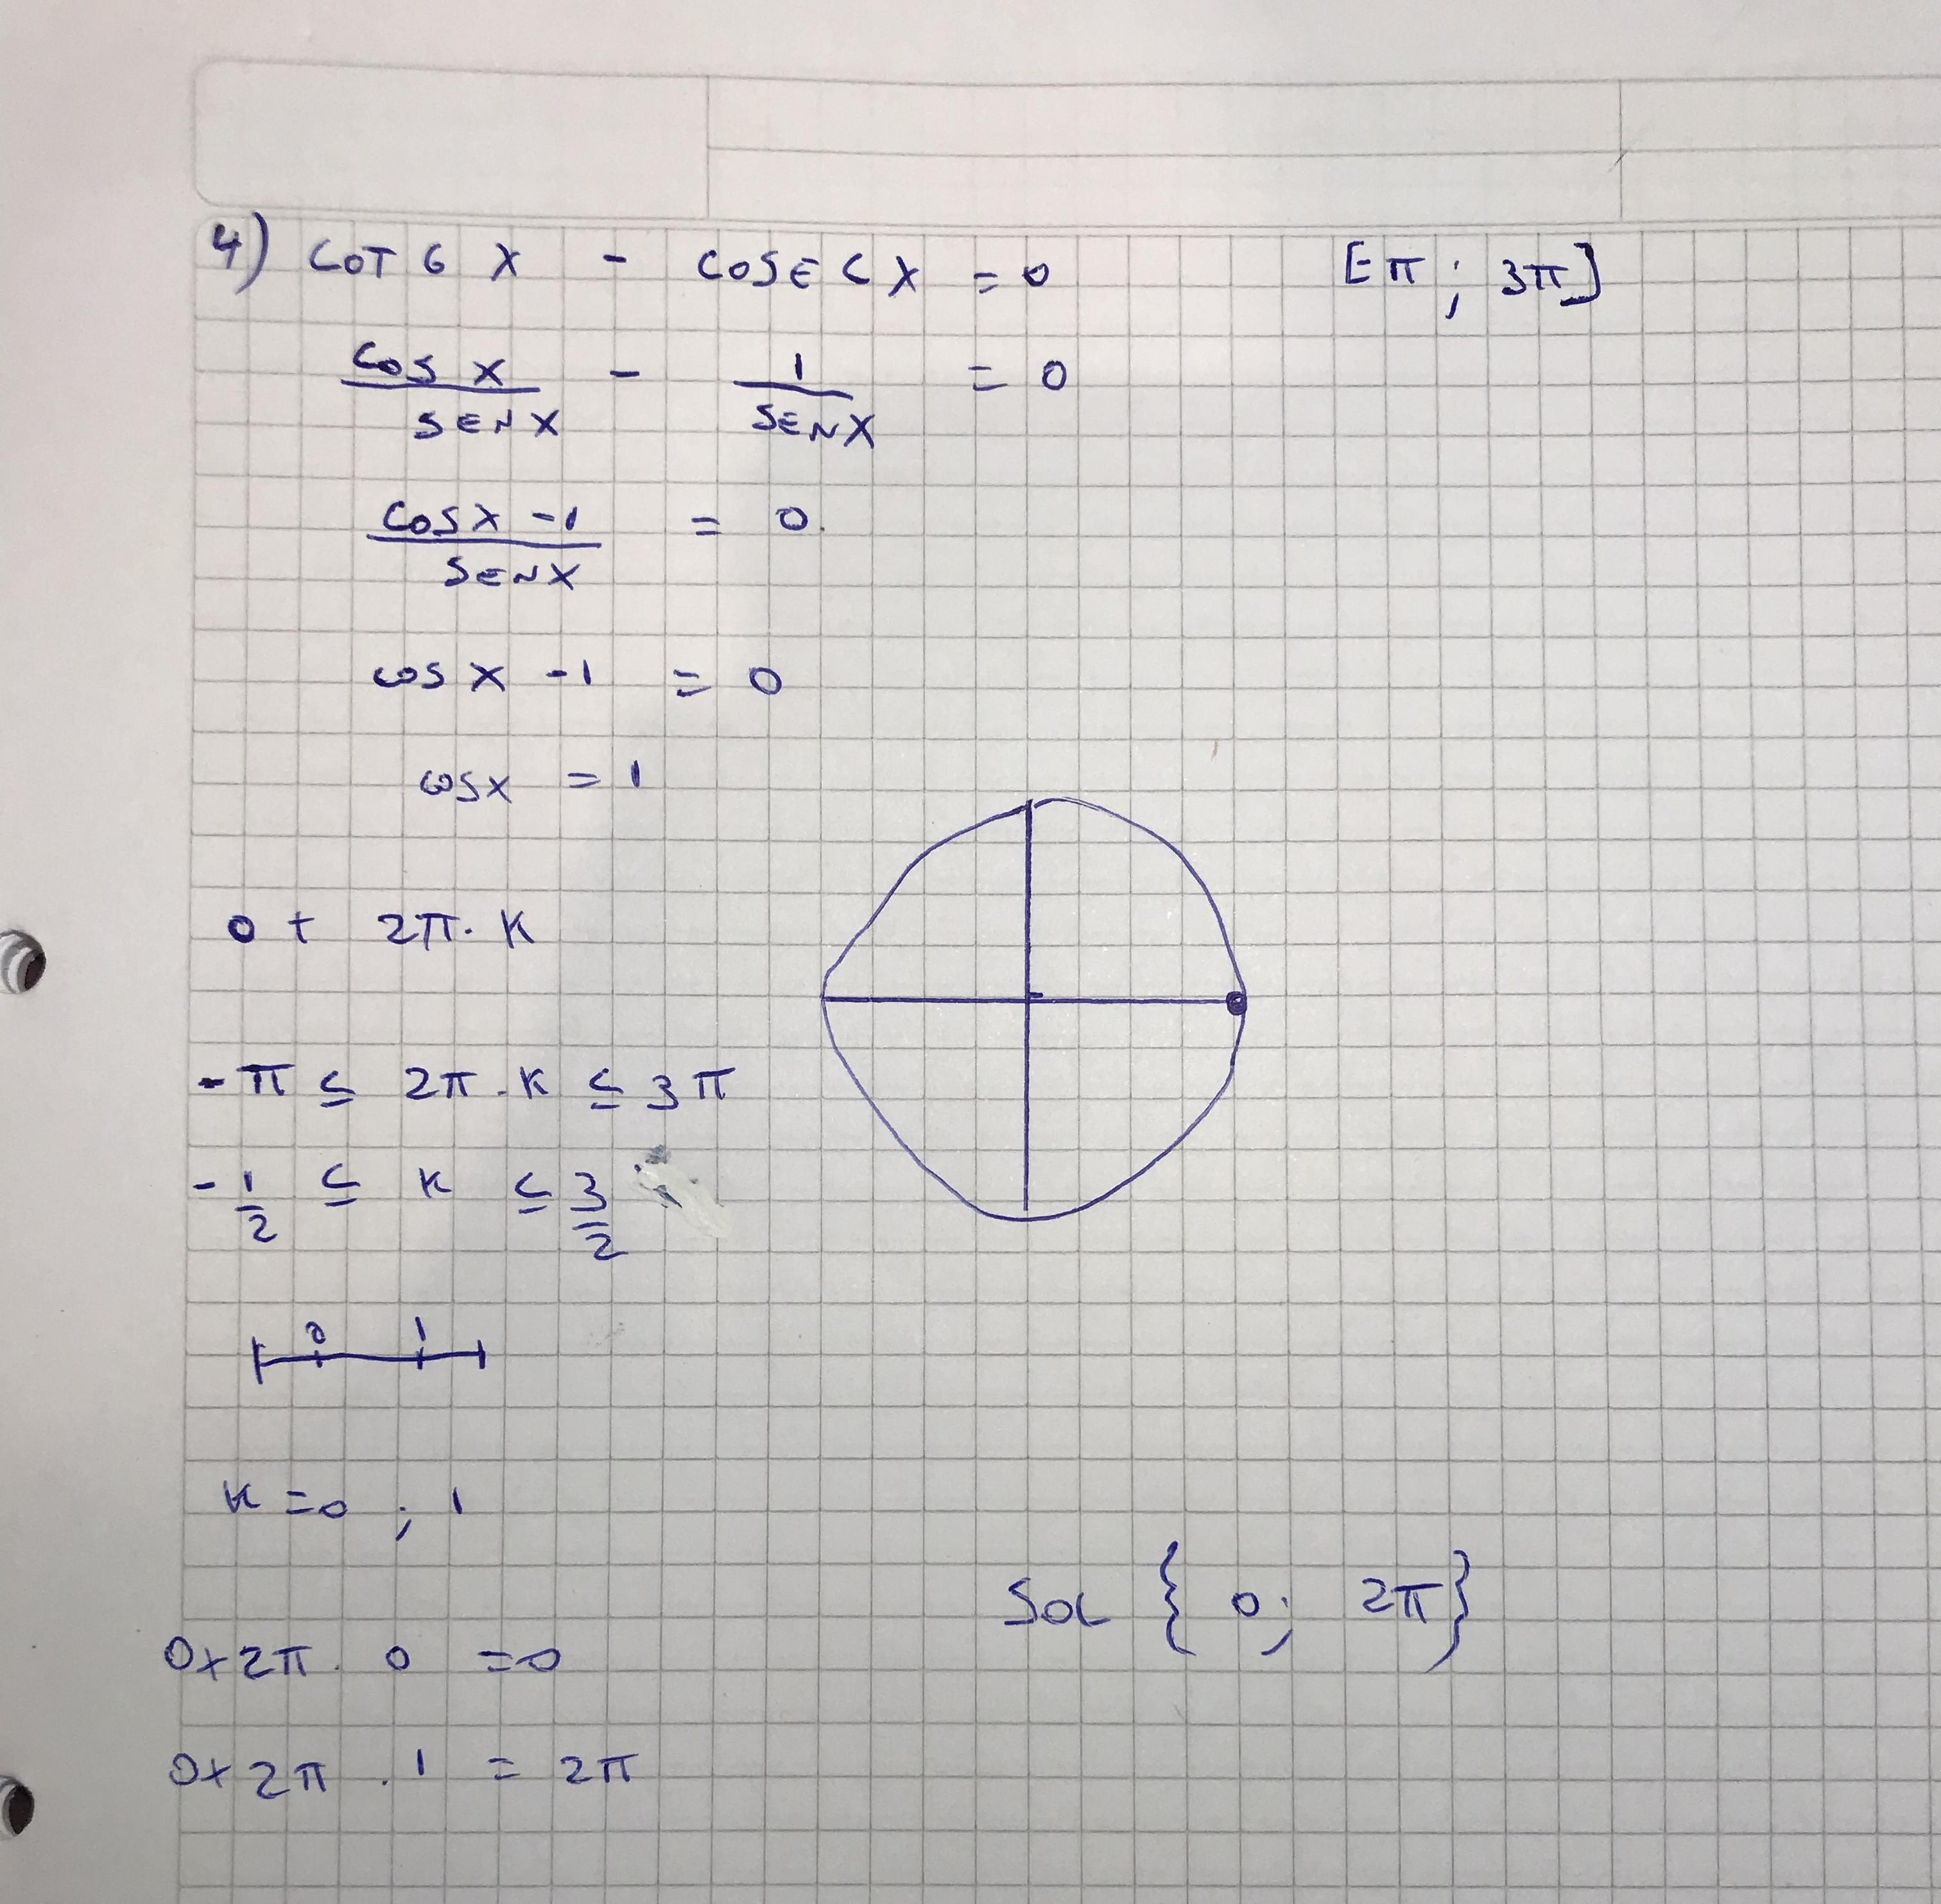 4) COTG X - COSEC X = 0 [-π ; 3π]
COS X / SENX - 1 / SENX = 0
COSX -1 / SENX = 0.
COS X -1 = 0
COSX = 1
0 + 2π. K
-π ≤ 2π . K ≤ 3π
-1/2 ≤ K ≤ 3/2
0 1
K =0 ; 1
SOL { 0; 2π}
0+2π . 0 =0
0+2π . 1 = 2π